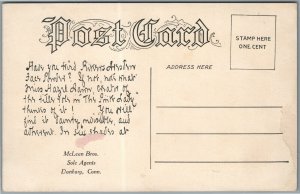 Post Card
STAMP HERE
ONE CENT
ADDRESS HERE
Have you tried Rivers
Face Powder? If not, hear what
Miss Hazel Dawn, creator of
the title role in The Pink Lady
thinks of it! You will
find it dainty, invisible, and
adherent. In six shades at
McLean Bros.
Sole Agents
Danbury, Conn.